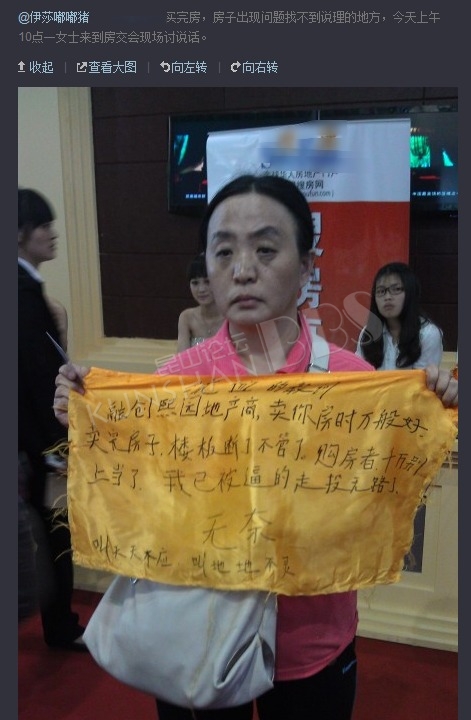 @伊莎嘟嘟猪 买完房，房子出现问题找不到说理的地方，今天上午
10点一女士来到房交会现场讨说话。
收起 | 查看大图 | 向左转 | 向右转
搜房网
昆山论坛
KUNSHAN BBS
融创熙园地产商，卖你房时万般好
卖完房子，楼板断了不管了。购房者千万别
上当了，我已被逼的走投无路！
无奈
叫天天不应 叫地地不灵